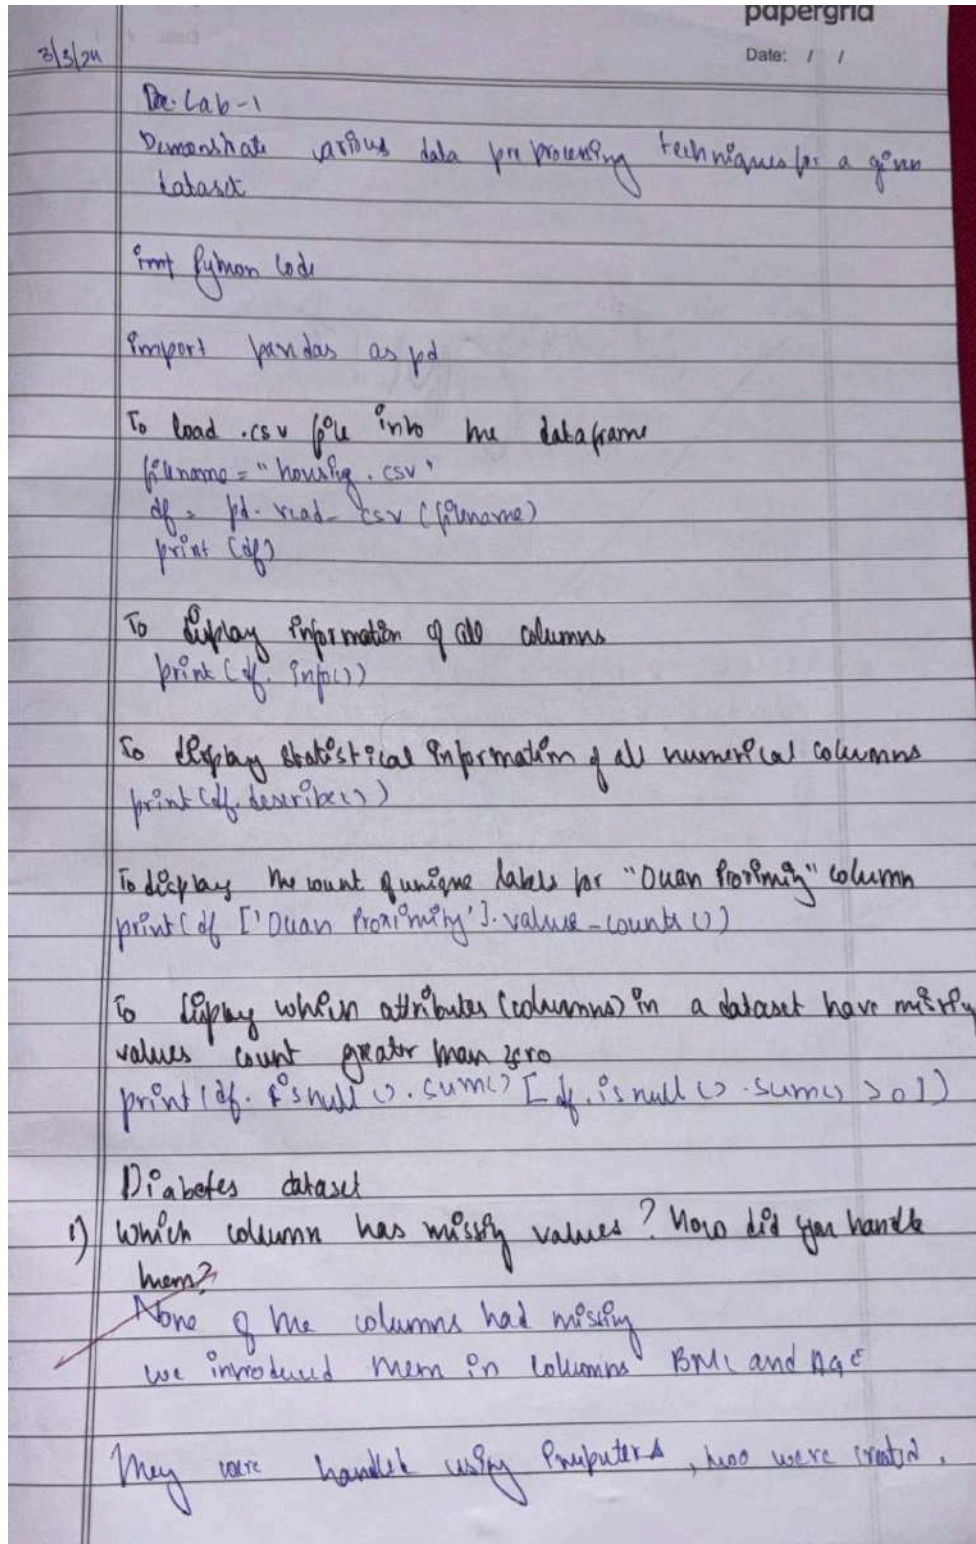 papergrid
Date: / /
3/3/24
Lab-1
Demonstrate various data preprocessing techniques for a given
dataset
Python Code
import pandas as pd
To load .csv file into the dataframe
filename = "housing.csv"
df = pd.read_csv(filename)
print(df)
To display information of all columns
print(df.info())
To display statistical information of all numerical columns
print(df.describe())
To display the count of unique labels for "Ocean Proximity" column
print(df['Ocean Proximity'].value_counts())
To display which attributes (columns) in a dataset have missing
values count greater than zero
print(df.isnull().sum()[df.isnull().sum()>0])
Diabetes dataset
1) Which column has missing values? How did you handle
them?
None of the columns had missing
we introduced them in columns BMI and AGE
They were handled using Imputers, two were created.